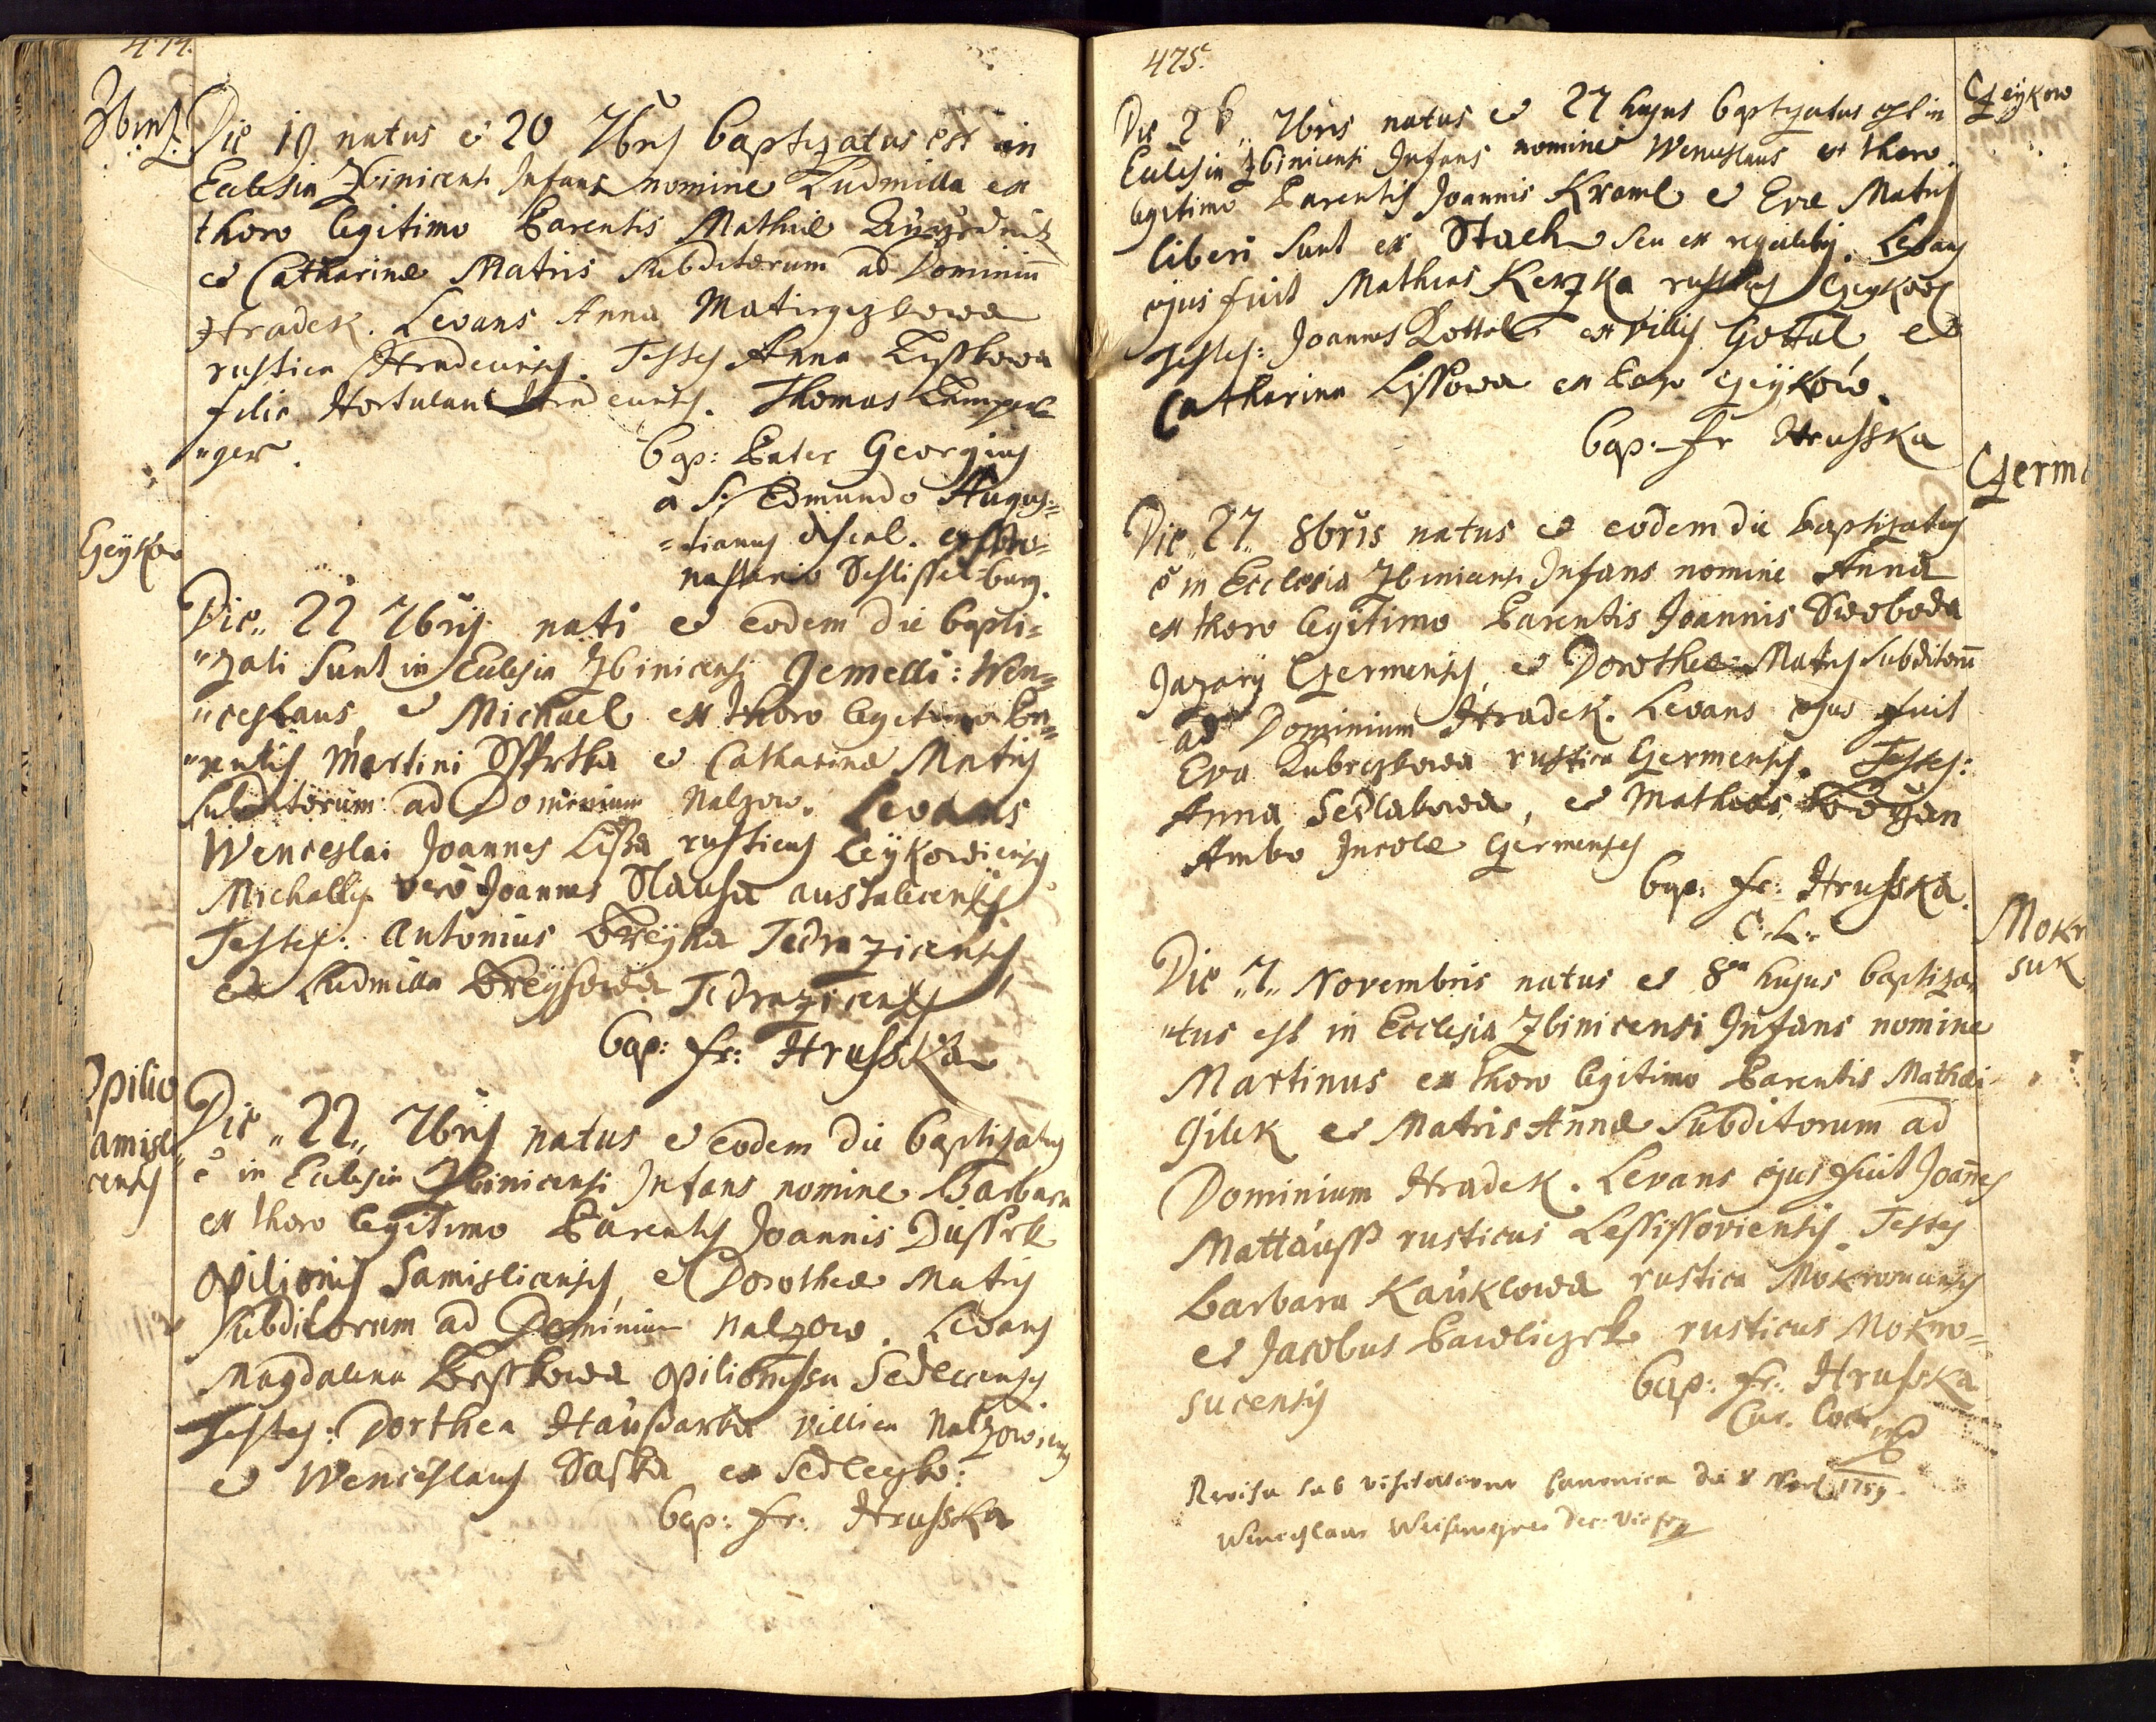 474.
Zbinz:
Die 19 natus e 20 7bris baptizatus est in
Ecclesia Zbinicensi Infans nomine Ludmilla ex
thoro legitimo Parentis Mathiæ
et Catharinæ Matris Subditorum ad Dominiū
Hradek. Levans Anna
rustica Hradecensis. Testes Anna
filia Hortulani Hradecensis. Thomas
"ger.
bap: Pater Georgius
a S: Edmundo Augus=
=tianus discal. ex Mo=
nasterio Schlisselburg.
Czeykow
Die „22 7bris nati et eodem die bapti=
"zati sunt in Ecclesia Zbinicensi Jemelli: Wen=
"ceslaus e Michael ex thoro legitimo Pa=
"rentis Martini et Catharinæ Matris
Subditorum ad Dominium Nalzow. Levans
Wenceslai Joannes Lissa rusticus Czeykowiensis
Michaelis vero Joannes Slausa
Testes: Antonius
et Ludmilla
bap: fr: Hrusska
Opilio
Samisli
censis
Die „22„ 7bris natus e eodem die baptizatus
ē in Ecclesia Zbinicensi Infans nomine Barbara
ex thoro legitimo Parentis Joannis Dussek
opilionis Samislicensis, e Dorotheæ Matris
Subditorum ad Dominium Nalzow. Levans
Magdalena opilionissa Sedlecensis
Testes: Dorthea villica Nalzowiensis
e Wenceslaus Saska ex
bap: fr: Hrusska
475.
Czeykow
Die 26„ 7bris natus e 27 hujus baptizatus est in
Ecclesia Zbinicensi Infans nomine Wenceslaus ex thoro
legitimo Parentis Joannis Kraml e Evæ Matris
liberi sunt ex Stach seu ex regalibus. Levans
ejus fuit Mathias Kerzka rusticus Czeykow
Testes: Joannes Kottal ex villis Gottal, e
Catharina Lissowa ex Pago Czeÿkow.
bap: fr Hrusska
Czerm
Die „27„ 8bris natus e eodem die baptizatus
ē in Ecclesia Zbinicensi Infans nomine Anna
ex thoro legitimo Parentis Joannis Swoboda
Czermensis, e Dorotheæ Matris Subditorū
ad Dominium Hradek. Levans ejus fuit
Eva rustica Czermensis. Testes:
Anna Sedlakowa, e Mathias
Ambo Incolæ Czermenses
bap: fr: Hrusska.
C: L:
Mokr
suk
Die „7„ Novembris natus e 8a hujus baptiza
"tus est in Ecclesia Zbinicensi Infans nomine
Martinus ex thoro legitimo Parentis Mathæi
Gilek e Matris Annæ Subditorum ad
Dominium Hradek. Levans ejus fuit Joannes
Mattaüss rusticus Testes
Barbara Kauklowa rustica
e Jacobus Pawliczek rusticus Mokro=
sucensis
bap: fr: Hrusska
Cur. Loc:
Revisa sub visitatione Canonica die 8
Wenceslaus